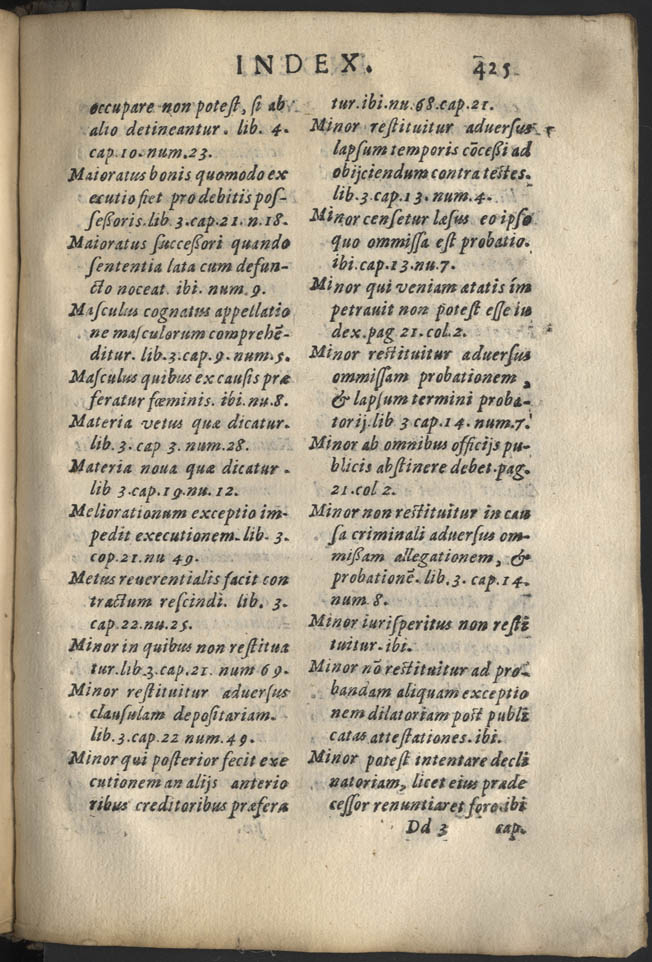 INDEX. 425
occupare non potest, si ab
alio detineantur. lib. 4.
cap.10.num.23.
Maioratus bonis quomodo ex
ecutio fiet pro debitis pos-
seßoris.lib.3.cap.21.n.18.
Maioratus succeßori quando
sententia lata cum defun-
cto noceat. ibi. num.9.
Masculus cognatus appellatio
ne masculorum comprehẽ-
ditur. lib.3.cap.9.num.5.
Masculus quibus ex causis præ
feratur fœminis. ibi.nu.8.
Materia vetus quæ dicatur.
lib.3.cap 3.num.28.
Materia noua quæ dicatur.
lib 3.cap.19.nu.12.
Meliorationum exceptio im-
pedit executionem. lib. 3.
cop.21.nu 49.
Metus reuerentialis facit con
tractum rescindi. lib. 3.
cap.22.nu.25.
Minor in quibus non restitua
tur.lib.3.cap.21. num 69.
Minor restituitur aduersus
clausulam depositariam.
lib.3.cap.22 num.49.
Minor qui posterior fecit exe
cutionem an alijs anterio
ribus creditoribus præfera
tur.ibi.nu.68.cap.21.
Minor restituitur aduersus
lapsum temporis cõceßi ad
obijciendum contra testes.
lib.3.cap.13.num.4.
Minor censetur læsus eo ipso
quo ommissa est probatio.
ibi.cap.13.nu.7.
Minor qui veniam ætatis im
petrauit non potest esse iu
dex.pag 21.col.2.
Minor restituitur aduersus
ommissam probationem,
& lapsum termini proba-
torij.lib 3 cap.14. num.7.
Minor ab omnibus officijs pu-
blicis abstinere debet.pag.
21.col 2.
Minor non restituitur in cau
sa criminali aduersus om-
mißam allegationem, &
probationẽ. lib.3. cap.14.
num 8.
Minor iurisperitus non resti
tuitur.ibi.
Minor nõ restituitur ad pro-
bandam aliquam exceptio
nem dilatoriam post publi
catas attestationes.ibi.
Minor potest intentare decli
natoriam, licet eius præde
cessor renuntiaret foro.ibi
Dd 3 cap.